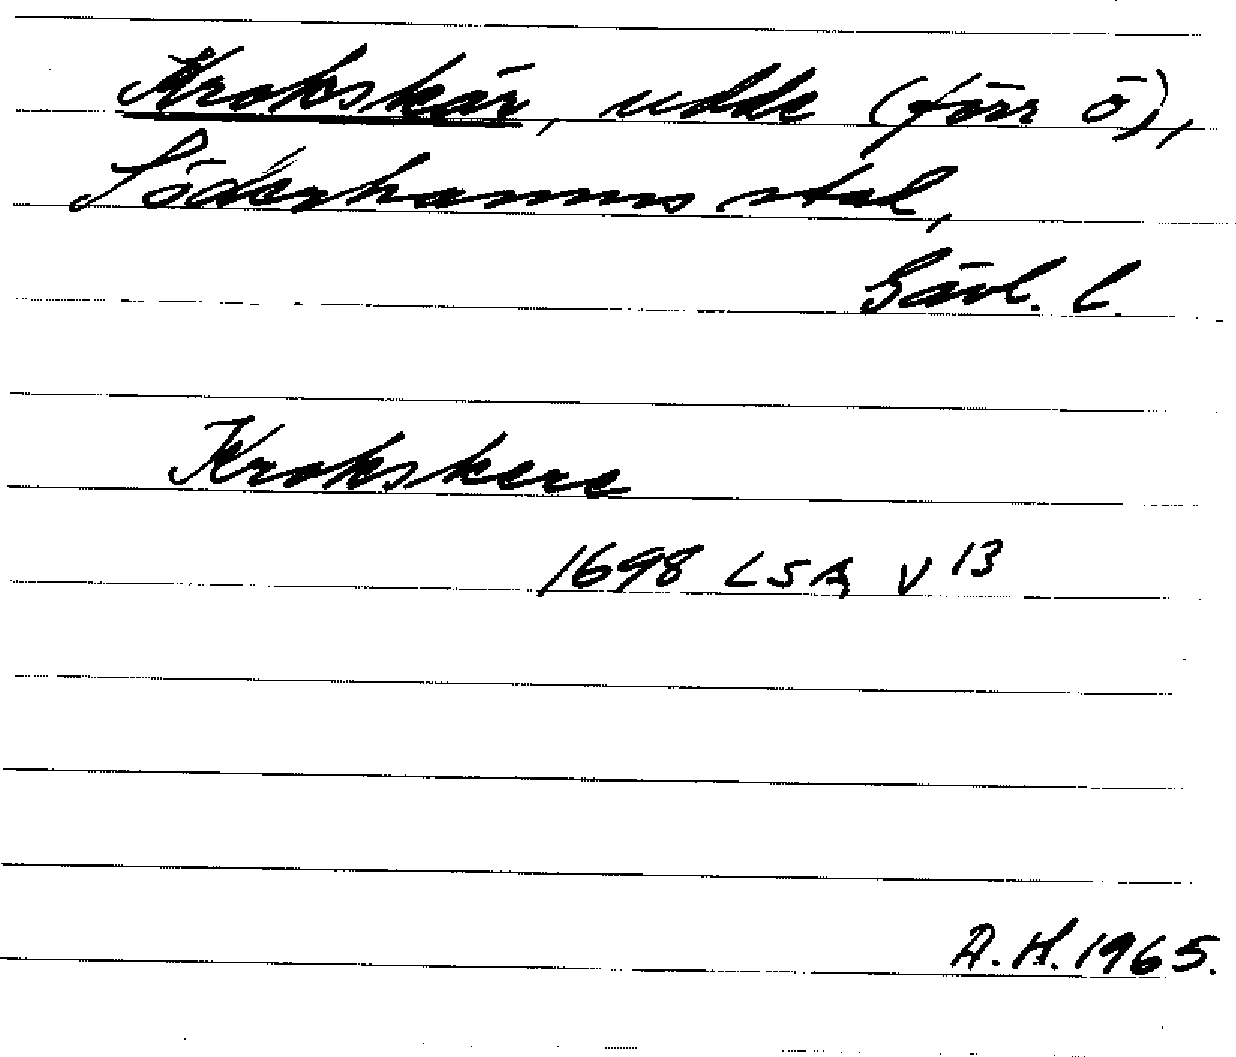 Krokskär, udde (förr ö),
Söderhamns stad,
Gävl. l.
Krokskere
1698 LSA V 13
A.H. 1965.